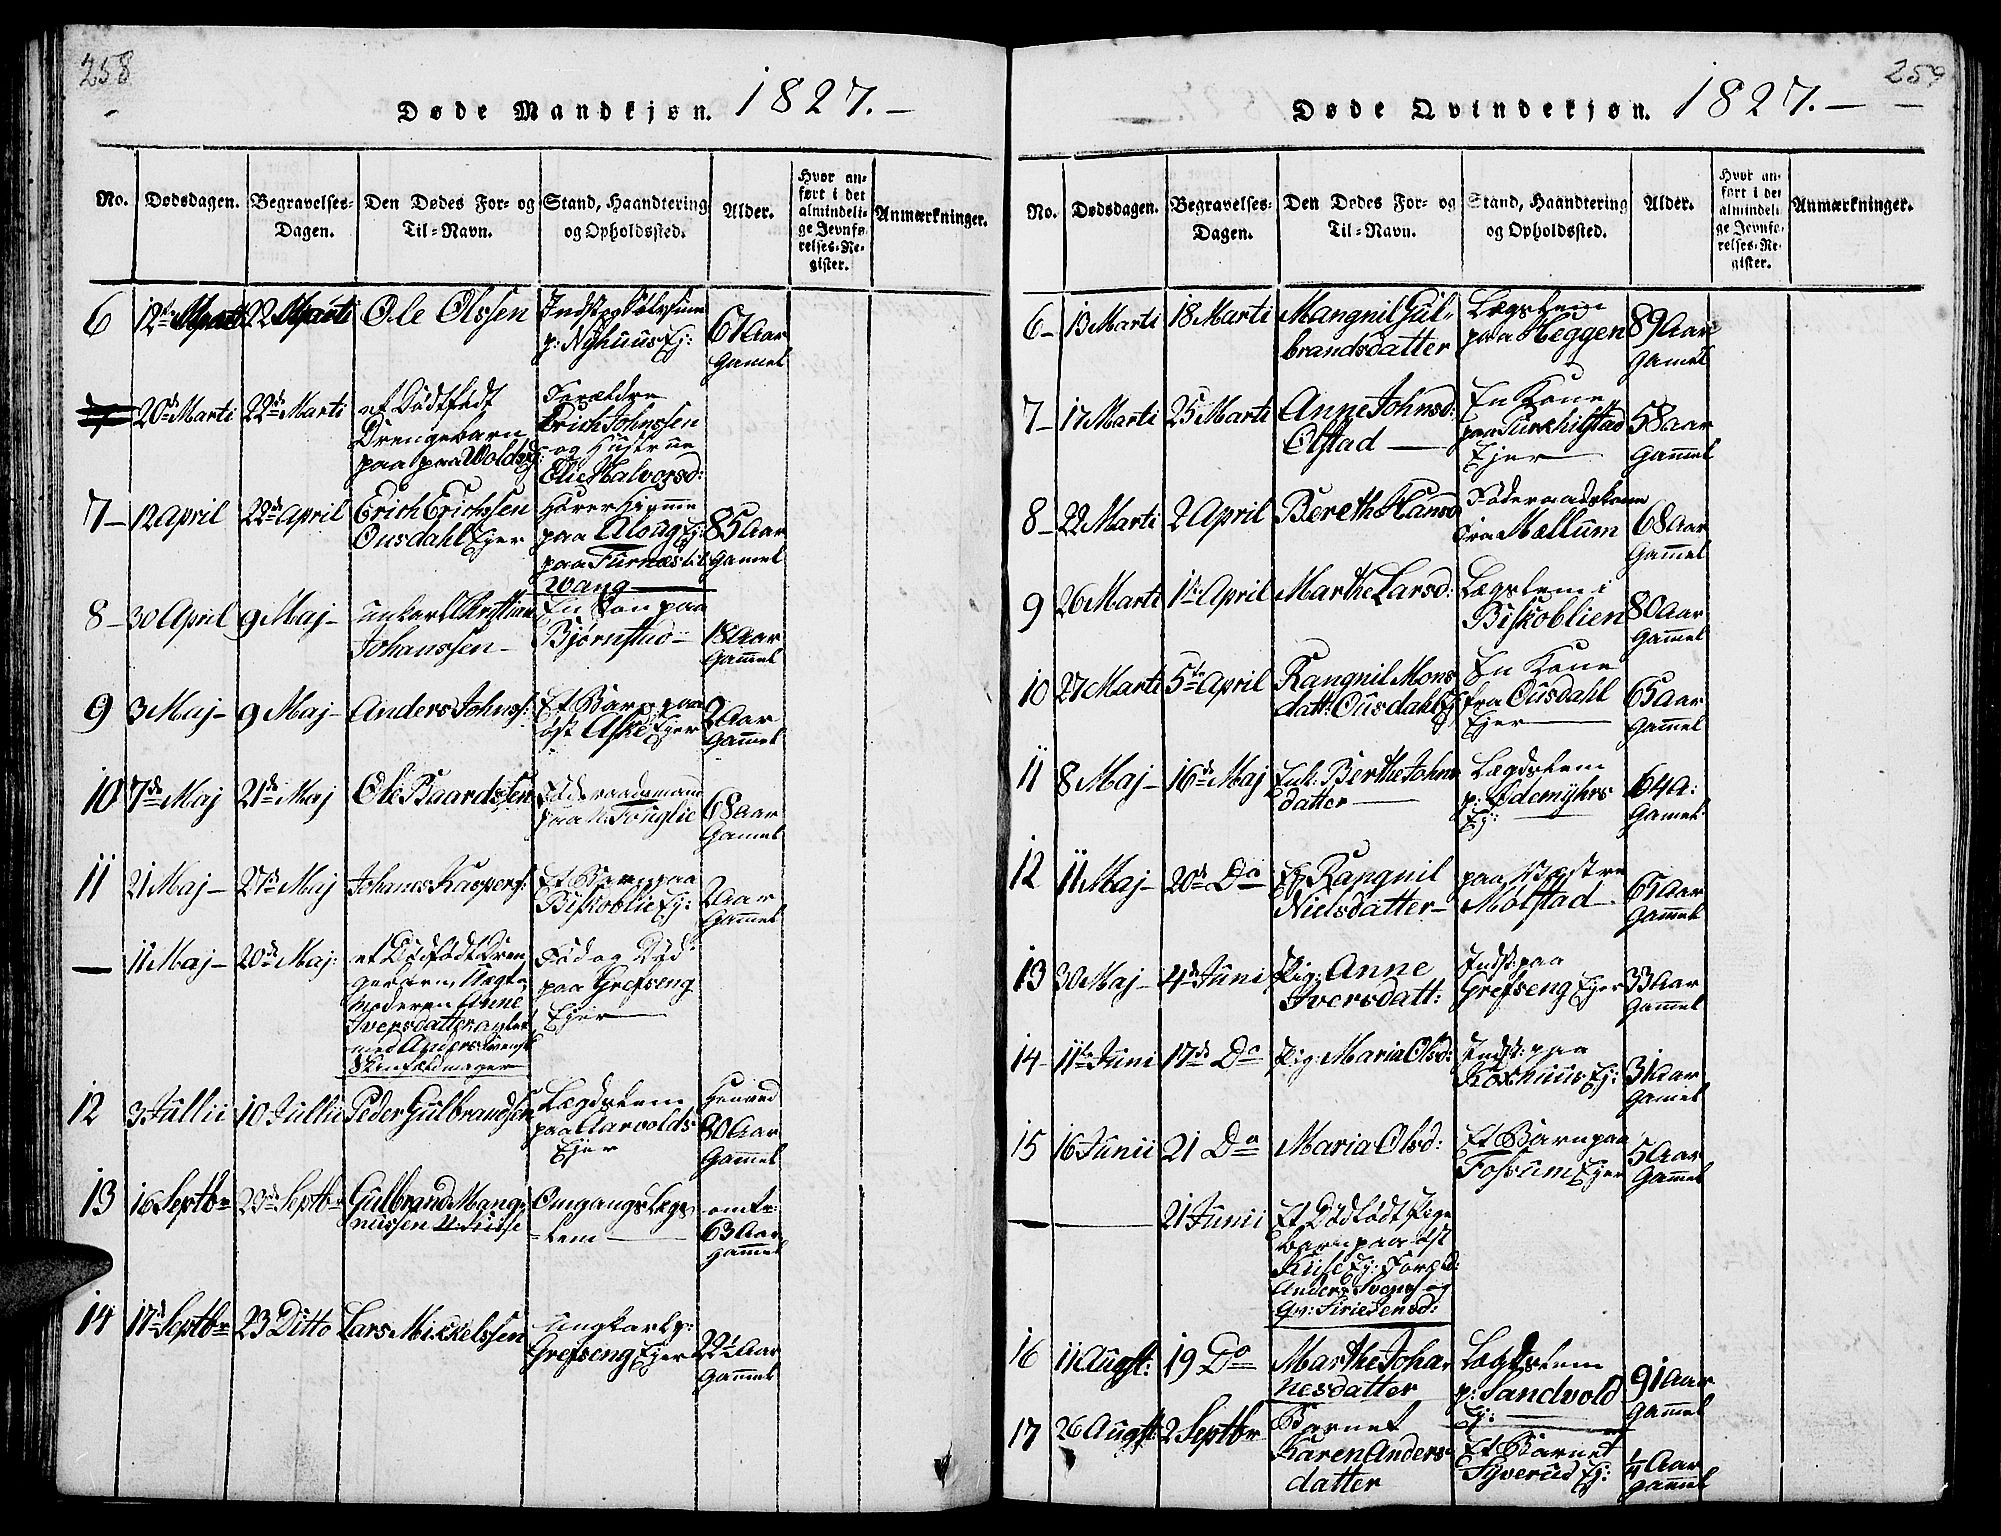 258
Døde Mandkjøn. 1827.-
No.
Dødsdagen.
Begravelses-
Dagen.
Den Dødes For- og
Til-Navn.
Stand, Haandtering
og Opholdssted.
Alder.
Hvor an-
ført i det
almindeli-
ge Jevnfø-
relses-Re-
gister.
Anmærkninger.
6 12te Marti 22 Marti Ole Olssen
p: Nyhuus Ej:
67 Aar
Gamel
7 20de Marti 22de Marti et Dødfødt
Drengebarn
paa paa Wolds Ej:
Forældre
Erich Johnssen
og Hustrue
Elie Halvorsd:
7- 12 April 22de April Erich Erichssen
Ousdahl Ejer
paa Along Ej:
paa Furnæs til
Wang
85 Aar
Gamel
8- 30 April 9 Maj- unkarl Christian
Johanssen-
En Søn paa
Bjørnstad-
18 Aar
Gammel
9 3 Maj- 9 Maj- Anders Johns:
Et Barn paa
øst Aske Ejer
2 Aar
Gammel
10 7de Maj 21de Maj Ole Baardssen
Føderaadsmand
paa N: Fonglie
68 Aar
Gamel
11 21 Maj- 27de Maj Johanes Kaspers:
Et Barn paa
Biskoblie Ej:
2 Aar
Gammel
— 11 Maj- 20de Maj: et Dødfødt Dren
gebarn, Uægte,
Moderen Anne
Iversdatter avlet
med Anders Svensk
Skinfældmager
Fød og Død
paa Grefseng
Ejer
12 3 Jullii 10 Jullii Peder Gulbrandsen
Lægdslem
paa Aarvolds
Ejer
Henved
80 Aar
Gammel
13 16 Septbr 23de Septbr Gulbrand Mang-
nussen
Omgangs Lægs-
lem
omtr:
63 Aar
Gammel
14 17de Septbr 23 Ditto Lars Mikkelssen
Ungkarl p:
Grefseng Ejer
22 Aar
Gammel
259
Døde Qvindekjøn. 1827.-
No.
Dødsdagen.
Begravelses-
Dagen.
Den Dødes For- og
Til-Navn.
Stand, Haandtering
og Opholdssted.
Alder.
Hvor an-
ført i det
almindeli-
ge Jevnfø-
relses-Re-
gister.
Anmærkninger.
6- 13 Marti 18 Marti Mangnil Gul-
brandsdatter
Lægslem
paa Heggen
89 Aar
Gamel
7- 17 Marti 25 Marti Anne Johnsd:
Olstad
En Kone
paa Purkhistad
Ejer
58 Aar
Gammel
8- 22 Marti 2 April Bereth Hansd
Føderaadskone
fra Mællum
68 Aar
Gammel
9 26 Marti 1te April Marthe Larsd:
Lægslem i
Biskoblien
80 Aar
Gammel
10 27 Marti 5te April Rangnil Mons
datt: Ousdahl Ej
En Kone
fra Ousdahl
Ejer
65 Aar
Gammel
11 8 Maj- 16de Maj Enk: Berthe Johns
datter
Lægdslem
p: Ødemyhrs
Ej:
64 A:
Gamel
12 11 Maj- 20de Do Rangnil
Nielsdatter-
paa Westre
Molstad
65 Aar
Gammel
13 30 Maj- 4de Juni Pig: Anne
Iversdatt:
Indst: paa
Grefseng Ejer
33 Aar
Gammel
14- 11te Juni 17de Do Pig: Maria Olsd:
Indst: paa
Koxhuus Ej:
31 Aar
Gamel
15 16 Junii 21 Do Maria Olsd:
Et Barn paa
Fossum Ejer
5 Aar
Gammel
— 21 Junii Et Dødfødt Pige
barn paa øst
Kiise Ej: Foræld:
Anders Svens: og
Qv: Sirie Jensd:
16 11 August: 19 Do Marthe Joha-
nesdatter
Lægdslem
p: Sandvold
Ej:
91 Aar
Gammel
17 26 August: 2 Septbr Barnet
Karen Anders-
datter
Et Barnet
Syverud Ej:
1/4 Aar
Gammel